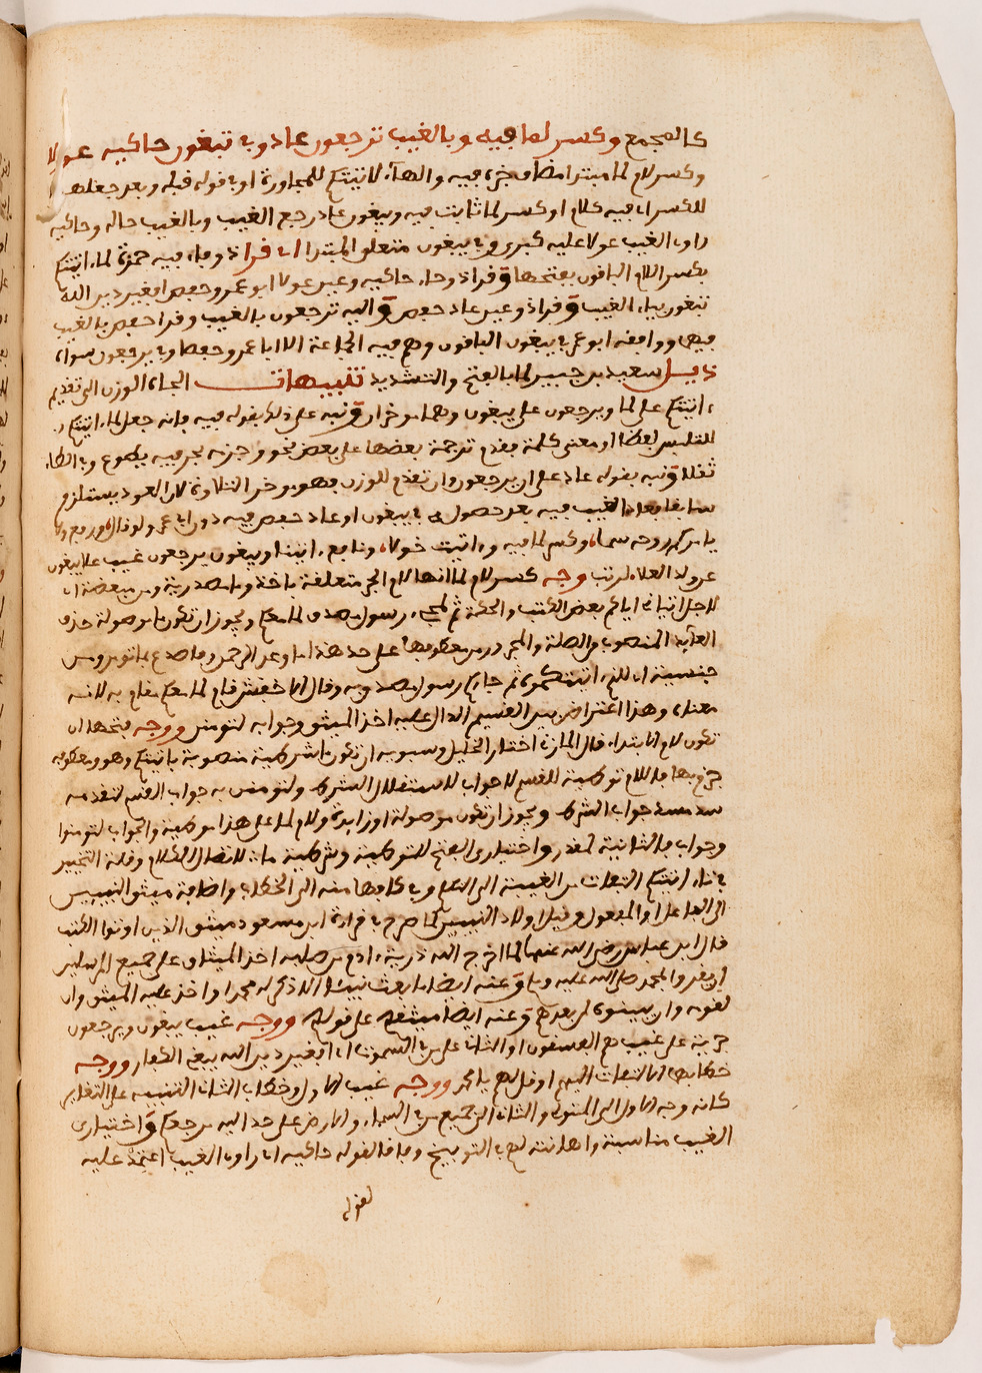 كالمجمع وكسر لما فيه وبالغيب ترجعون عاد وفي تبغون حاكيه عولا
وكسر لام لما مبتدا مضاف خبره فيه والهاء لاتيتكم للمجاورة او في قوله قبله وبعد جعلها
للكسر اي فيه كلام او كسر لما ثابت فيه ويبغون عاد رجع الغيب وبالغيب حاله وحاكيه
راوي الغيب عولا عليه كبرى وفي يبغون متعلق المبتدا اي قرا ذو فاء فيه حمزة لما اتيتكم
بكسر اللام الباقون بفتحها وقرا ذو حاء حاكيه وعين عولا ابو عمرو وحفص افغير دين الله
تبغون بياء الغيب وقرا ذو عين عاد حفص واليه ترجعون بالغيب وقرا حفص بالغيب
فيهما ووافقه ابو عمرو في يبغون الباقون وهم فيه الجماعة الا ابا عمرو وحفصا وفي يرجعون سواه
ذيل سعيد بن جبير لما بالفتح والتشديد تنبيهات الجاء الوزن الى تقديم
اتيتكم على لما ويرجعون على يبغون وهما موخران ونبه على ذلك بقوله فيه فانه جعل لما اتيتكم
للتلبس لفظا او معنى كلمة فقدم ترجمة بعضها على بعض نحو وجزه بحر فيه يطوع وفي الطاء
ثقلا ونبه بقوله عاد على ان يرجعون وان تقدم للوزن فهو موخر التلاوة لان العود يستلزم
سابقا فعاد الغيب فيه بعد حصوله في يبغون او عاد حفص فيه دون ابي عمرو ولو قال ورفع ولا
يامركم روحه سما وكسر لما فيه واتيت خولا ونافع اتينا ويبغون يرجعون غيب علا يبغون
عن ولد العلاء لرتب وجه كسر لام لما انها لام الجر متعلقة باخذ وما مصدرية ومن مبعضة اي
لاجل اتياني اياكم بعض الكتب والحكمة ثم لمجيء رسول مصدق لما معكم ويجوز ان تكون ما موصولة حذف
العائد المنصوب في الصلة والمجرور من معطوفها على حد هذا ما وعد الرحمن وفاصدع بما تومر ومن
جنسية اي للذي اتيتكموه ثم جاءكم رسول مصدق به وقال الاخفش قام لما معكم مقام به لانه
معناه وهذا اعتراض بين القسم الدال عليه اخذ الميثق وجوابه لتومنن ووجه فتحها ان
تكون لام الابتداء قال المازني اختار الخليل وسيبويه ان تكون ما شرطية منصوبة باتيتكم وهو ومعطوفه
جزم بها واللام توطية للقسم لا جواب للاستقلال الشرط ولتومنن به جواب القسم لتقدمه
سد مسد جواب الشرط ويجوز ان تكون موصولة او زايدة ولام لما على هذا موطية والجواب لتومنوا
وجواب ما الثانية لمقدر واختياري الفتح للتوطية وشرطية ما لاتصال الكلام وقلة التغيير
في تاء اتيتكم التفات من الغيبة الى التكلم وفي كافها منه الى الخطاب واضافة ميثق النبيين
الى الفاعل او المفعول وقيل اولاد النبيين كما صرح في قراءة ابن مسعود ميثق الذين اوتوا الكتب
قال ابن عباس رضي الله عنهما لما اخرج الله ذرية ادم من صلبه اخذ الميثاق على جميع المرسلين
ان يقروا بمحمد صلى الله عليه وسلم وعنه ايضا ما بعث نبيا الا ذكر له محمدا واخذ عليه الميثق وان
لقوه وان يبينوه لمن بعدهم وعنه ايضا ميثقهم على قولهم ووجه غيب يبغون ويرجعون
جريه على غيب هم الفسقون او الثاني على من في السموت اي افغير دين الله يبغي الكفار ووجه
خطابهما الالتفات اليهم او قل لهم يا محمد ووجه غيب الاول وخطاب الثاني التنبيه على التغاير
كانه وجه الاول الى المتولي والثاني الى جميع من في السماء والارض على حد اليه مرجعكم واختياري
الغيب مناسبة واهانته لهم بالتوبيخ وما قالقوله حاكيه اي راوي الغيب اعتمد عليه
لقوله